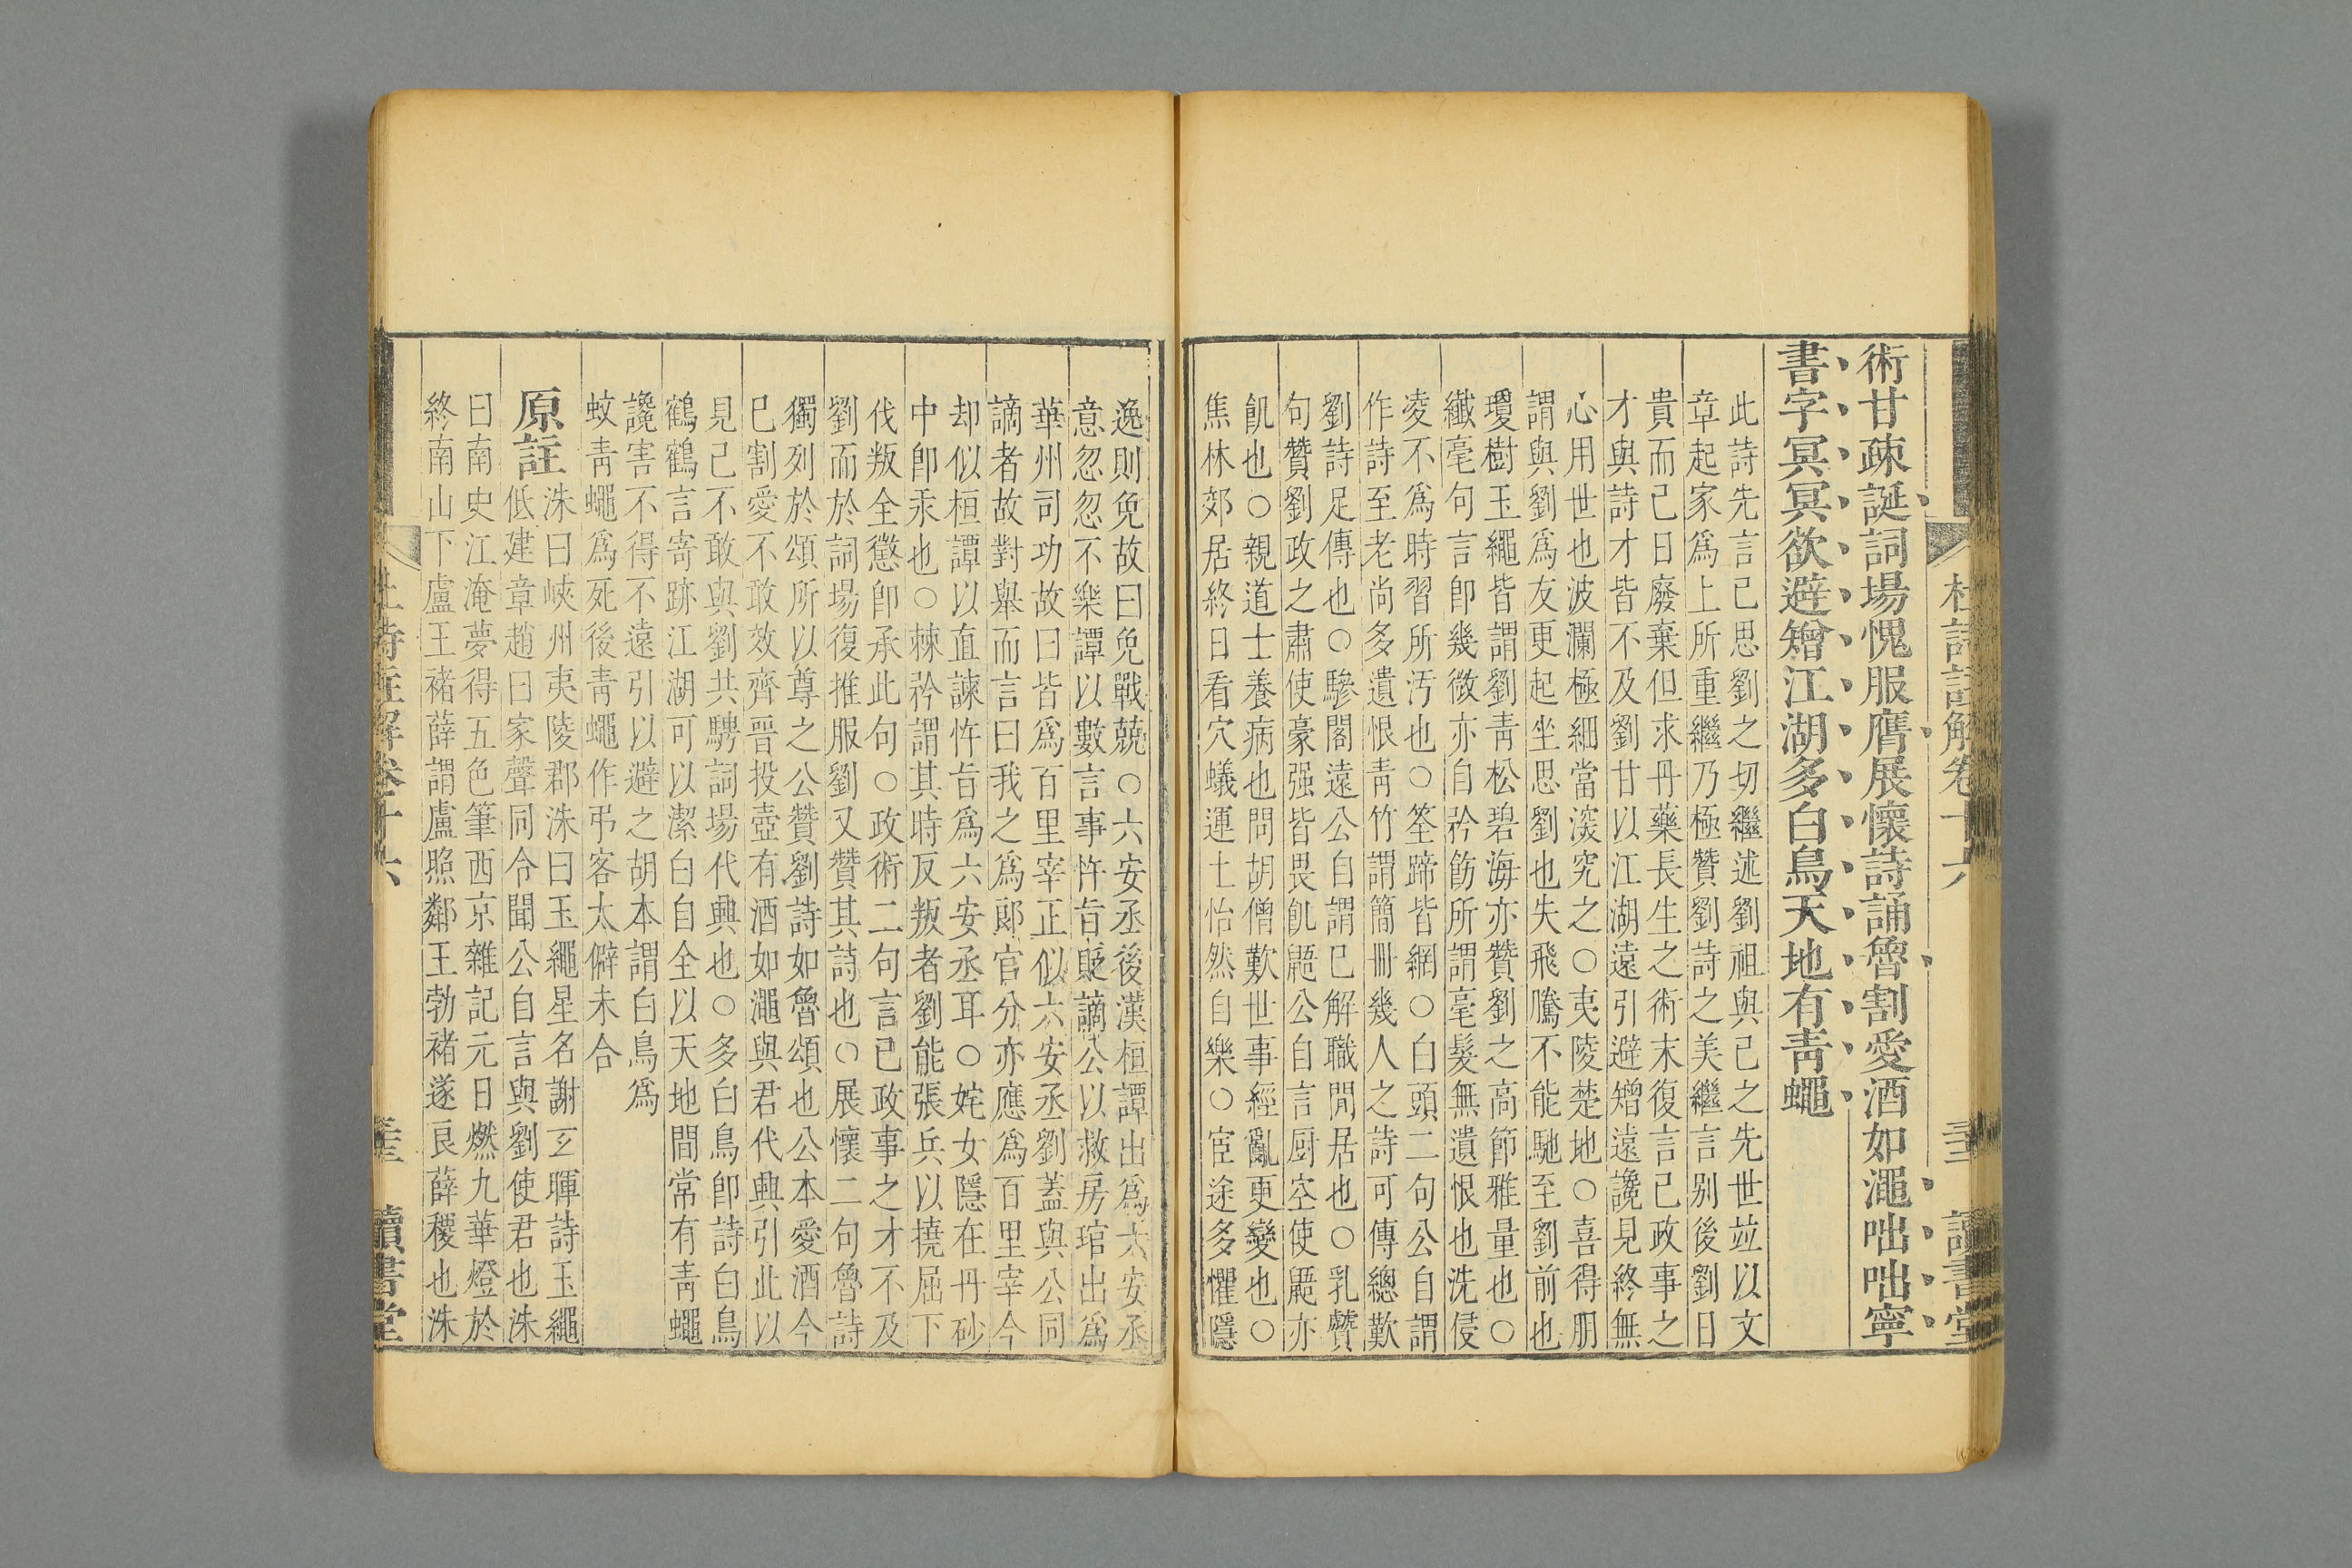 杜詩註解卷十六
讀書堂
術甘疎誕詞場愧服膺展懷詩誦魯割愛酒如澠咄咄寧
書字冥冥欲避矰江湖多白鳥天地有靑蠅
此詩先言己思劉之切繼述劉祖與己之先世竝以文
章起家爲上所重繼乃極贊劉詩之美繼言别後劉日
貴而己日廢棄但求丹藥長生之術末復言己政事之
才與詩才皆不及劉甘以江湖遠引避矰遠讒見終無
心用世也波瀾極細當深究之○夷陵楚地○喜得朋
謂與劉爲友更起坐思劉也失飛騰不能馳至劉前也
瓊樹玉繩皆謂劉靑松碧海亦贊劉之高節雅量也○
纖毫句言卽幾微亦自矜飭所謂毫髮無遺恨也洗侵
凌不爲時習所汚也○筌蹄皆網○白頭二句公自謂
作詩至老尚多遺恨靑竹謂簡冊幾人之詩可傳總歎
劉詩足傳也○驂閣遠公自謂已解職閒居也○乳贙
句贊劉政之肅使豪强皆畏飢鼯公自言厨空使鼯亦
飢也○親道士養病也問胡僧歎世事經亂更變也○
焦林郊居終日看穴蟻運土怡然自樂○宦途多懼隱
逸則免故曰免戰兢○六安丞後漢桓譚出爲六安丞
意忽忽不樂譚以數言事忤旨貶謫公以救房琯出爲
華州司功故曰皆爲百里宰正似六安丞劉蓋與公同
謫者故對舉而言曰我之爲郎官分亦應爲百里宰今
却似桓譚以直諫忤旨爲六安丞耳○姹女隱在丹砂
中卽汞也○棘矜謂其時反叛者劉能張兵以撓屈下
伐叛全懲卽承此句○政術二句言己政事之才不及
劉而於詞場復推服劉又贊其詩也○展懷二句魯詩
獨列於頌所以尊之公贊劉詩如魯頌也公本愛酒今
已割愛不敢效齊晉投壺有酒如澠與君代興引此以
見己不敢與劉共騁詞場代興也○多白鳥卽詩白鳥
鶴鶴言寄跡江湖可以潔白自全以天地間常有靑蠅
讒害不得不遠引以避之胡本謂白鳥爲
蚊靑蠅爲死後靑蠅作弔客太僻未合
原註
洙曰峽州夷陵郡洙曰玉繩星名謝玄暉詩玉繩
低建章趙曰家聲同令聞公自言與劉使君也洙
曰南史江淹夢得五色筆西京雜記元日燃九華燈於
終南山下盧王褚薛謂盧照鄰王勃褚遂良薛稷也洙
杜詩註解卷十六
讀書堂